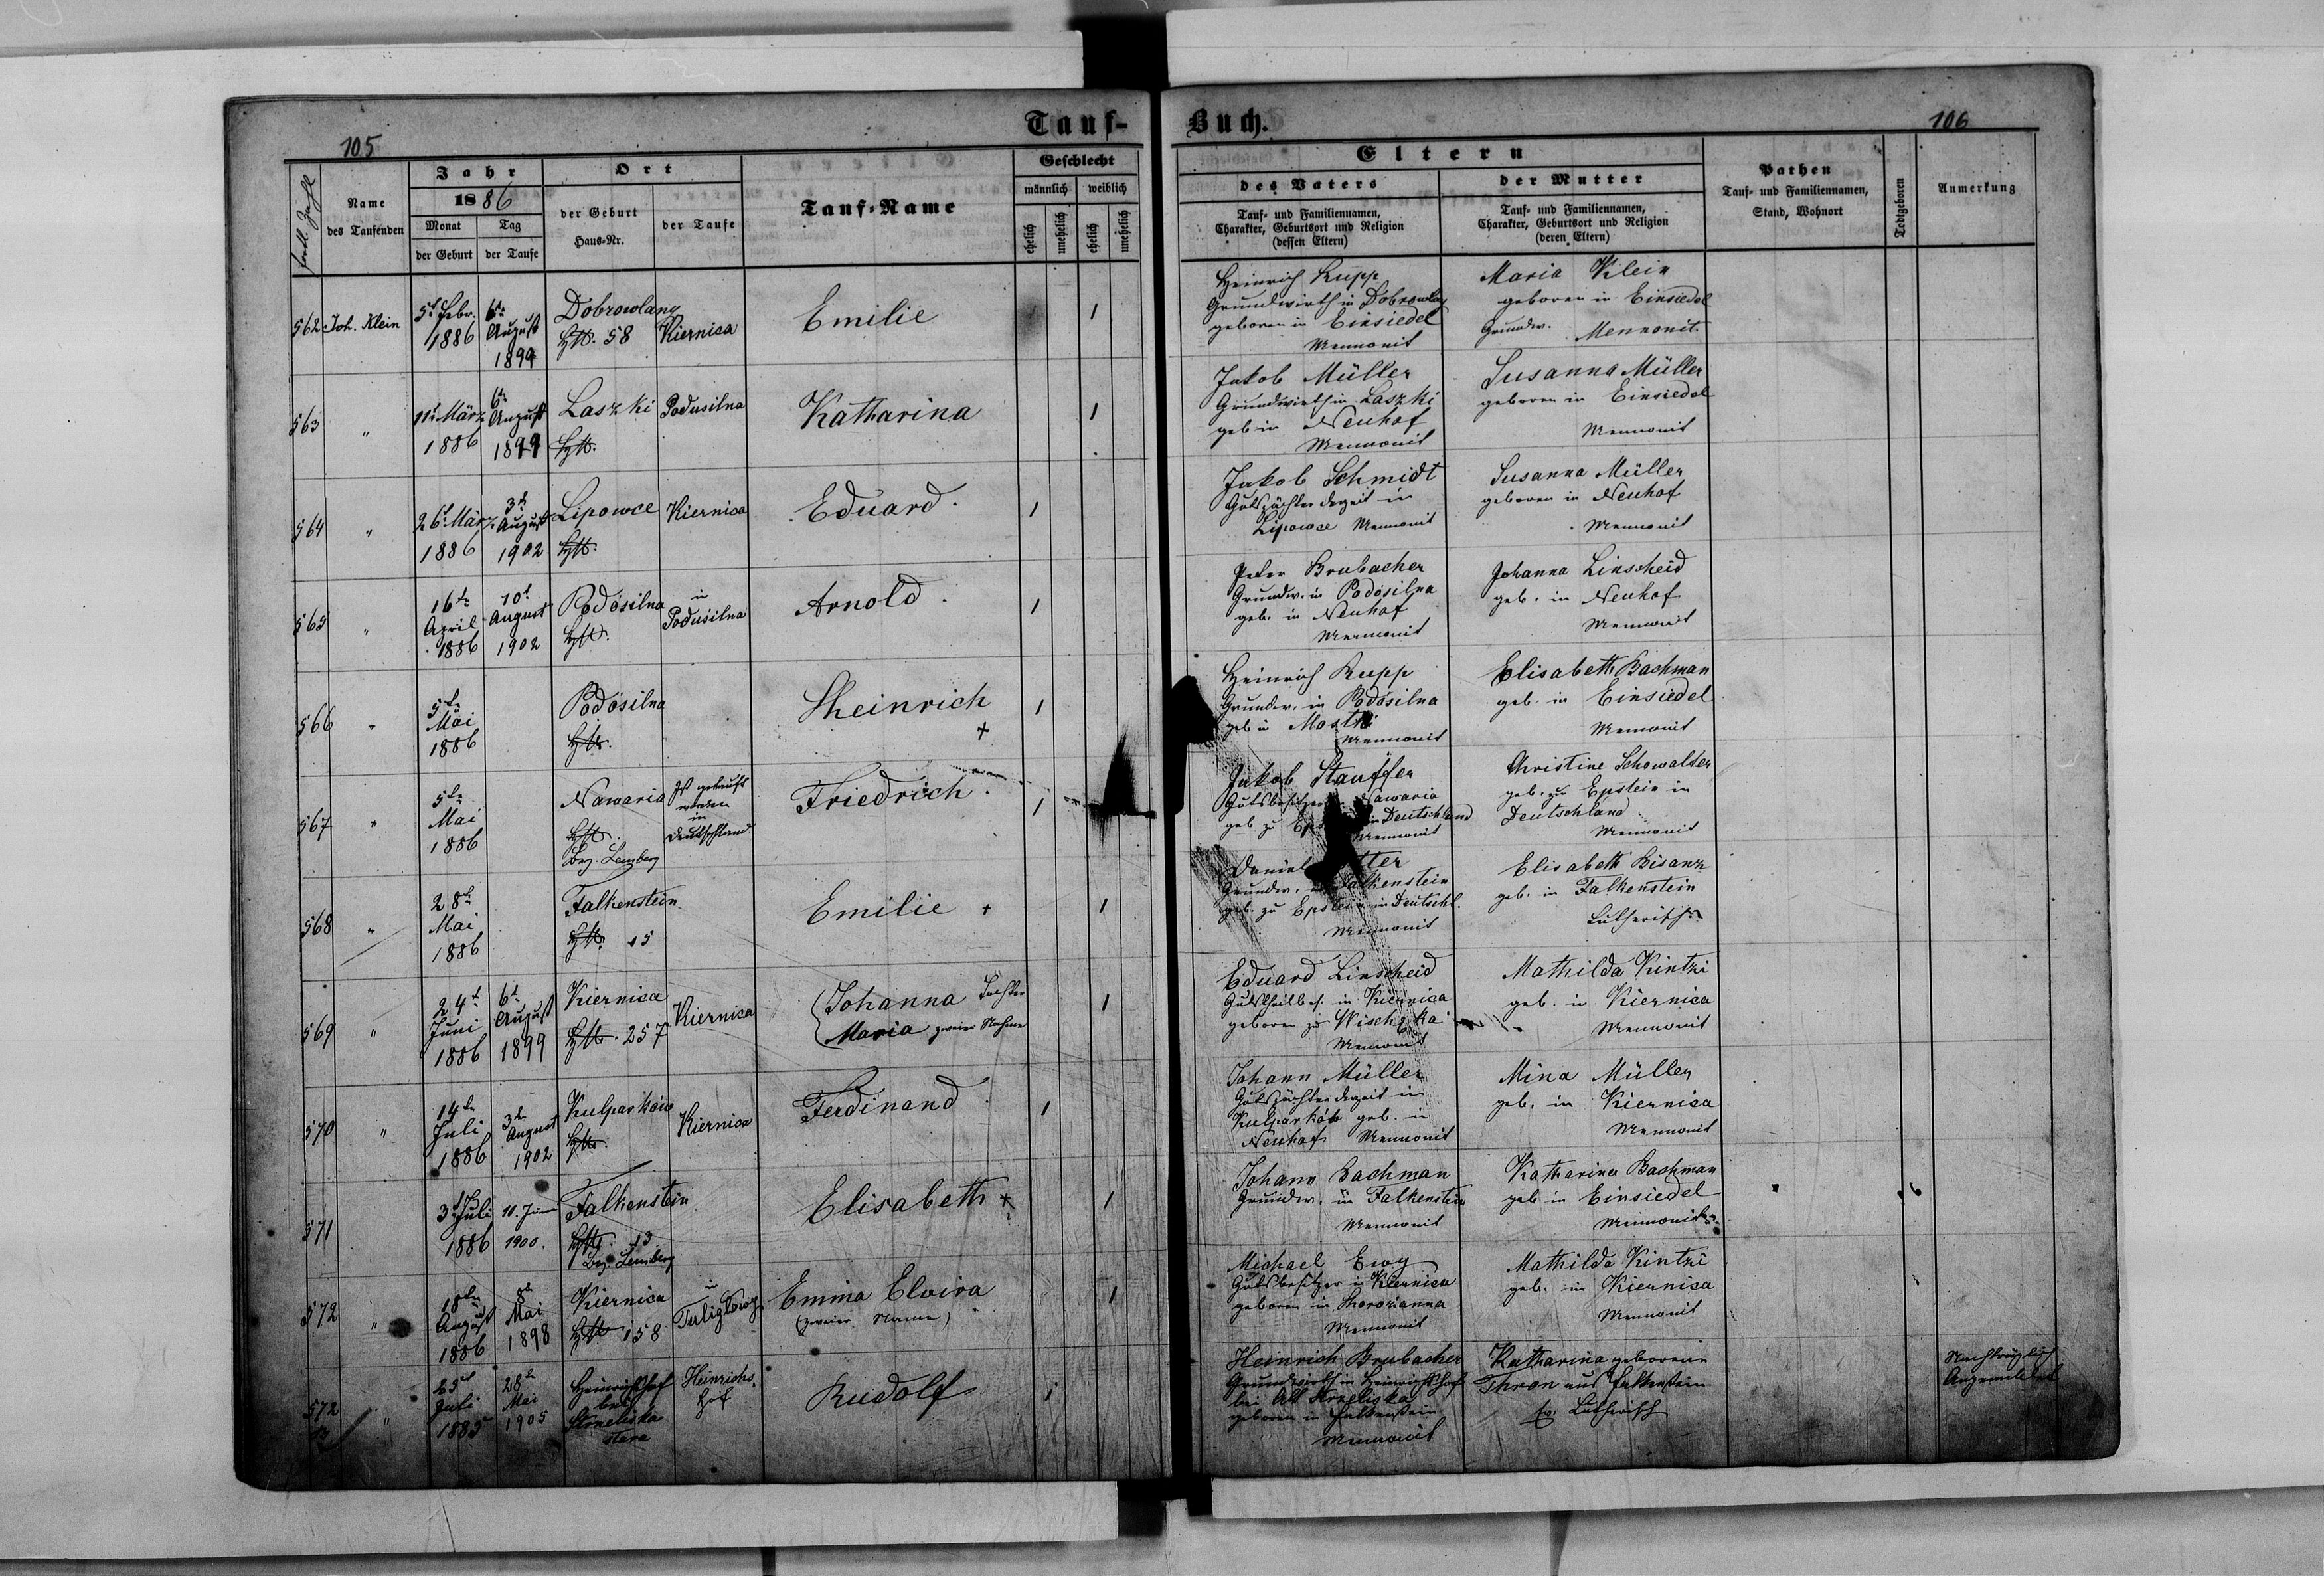 Tauf-
Buch.
105
106
fortl. Zahl
Name
des Taufenden
Jahr
1886
Monat
Tag
der Geburt
der Taufe
Ort
der Geburt
Haus-Nr.
der Taufe
Tauf-Name
Geschlecht
männlich
weiblich
ehelich
unehelich
ehelich
unehelich
Eltern
des Vaters
Tauf- und Familiennamen,
Charakter, Geburtsort und Religion
(dessen Eltern)
der Mutter
Tauf- und Familiennamen,
Charakter, Geburtsort und Religion
(deren Eltern)
Pathen
Tauf- und Familiennamen,
Stand, Wohnort
Todtgeboren
Anmerkung
562 Joh. Klein
5t Febr.
1886
6te
August
1899
Dobrowlany
58
Kiernica
Emilie
1
Heinrich Rupp
Grundwirth in Dobrowlany
geboren in Einsiedel
Mennonit
Maria Klein
geboren in Einsiedel
Grundw. Mennonit.
563 "
11t März
1886
6te
August
1899
Laszki
Podusilna
Katharina
1
Jakob Müller
Grundwirth in Laszki
geb in Neuhof
Mennonit
Susanna Müller
geboren in Einsiedel
Mennonit
564 "
26t März
1886
3t
August
1902
Lipowce
Kiernica
Eduard.
1
Jakob Schmidt
Gutspächter derzeit in
Lipowce Mennonit
Susanna Müller
geboren in Neuhof
Mennonit
565 "
16te
April
1886
10t
August
1902
Podósilna
in
Podusilna
Arnold.
1
Peter Brubacher
Grundw. in Podósilna
geb. in Neuhof
Mennonit
Johanna Linscheid
geb. in Neuhof
Mennonit
566 "
5te
Mai
1886
Podósilna
Heinrich
+
1
Heinrich Rupp
Grundw. in Podósilna
geb in Mostki
Mennonit
Elisabeth Bachman
geb. in Einsiedel
Mennonit
567 "
5te
Mai
1886
Nawaria
Bez. Lemberg
Ist getauft
worden
in
Deutschland
Friedrich.
1
Jakob Stauffer
Gutsbesitzer Nawaria
geb zu in Deutschland
Mennonit
Christine Schowalter
geb. zu Epstein in
Deutschland
Mennonit
568 "
28te
Mai
1886
Falkenstein
15
Emilie +
1
Daniel
Grundw. in Falkenstein
geb. zu Epstein in Deutschl.
Mennonit
Elisabeth Bisanz
geb. in Falkenstein
Lutherisch
569 "
24t
Juni
1886
6t
August
1899
Kiernica
257
Kiernica
Johanna Tochter
Maria zweier Nahme
1
Eduard Linscheid
Gutstheilbes. in Kiernica
geboren zu
Mennonit
Mathilda Kintzi
geb. in Kiernica
Mennonit
570 "
14te
Juli
1886
3t
August
1902
Kulparków
Kiernica
Ferdinand
1
Johann Müller
Gutspächter derzeit in
Kulparków geb. in
Neuhof Mennonit
Mina Müller
geb. in Kiernica
Mennonit
571
3t Juli
1886
1900.
Falkenstein
13
Bez. Lemberg
Elisabeth +
1
Johann Bachman
Grundw. in Falkenstein
Mennonit
Katharina Bachman
geb in Einsiedel
572 "
18te
August
1886
8t
Mai
1898
Kiernica
158
in
Tuligłowy
Emma Elvira
(zweier Name)
1
Michael Ewy
Gutsbesitzer in Kiernica
geboren in
Mennonit
Mathilda Kintzi
geb. in Kiernica
Mennonit
572 "
Juli
1885
28te
Mai
1905
Heinrichshof
bei
Strzeliska
stara
Heinrichs-
hof
Rudolf
1
Heinrich Brubacher
Grundwirth in Heinrichshof
bei Alt Strzeliska
geboren in Falkenstein
Mennonit
Katharina geborene
Thron aus Falkenstein
ev. Lutherisch
Nachträglich
Angemeldet